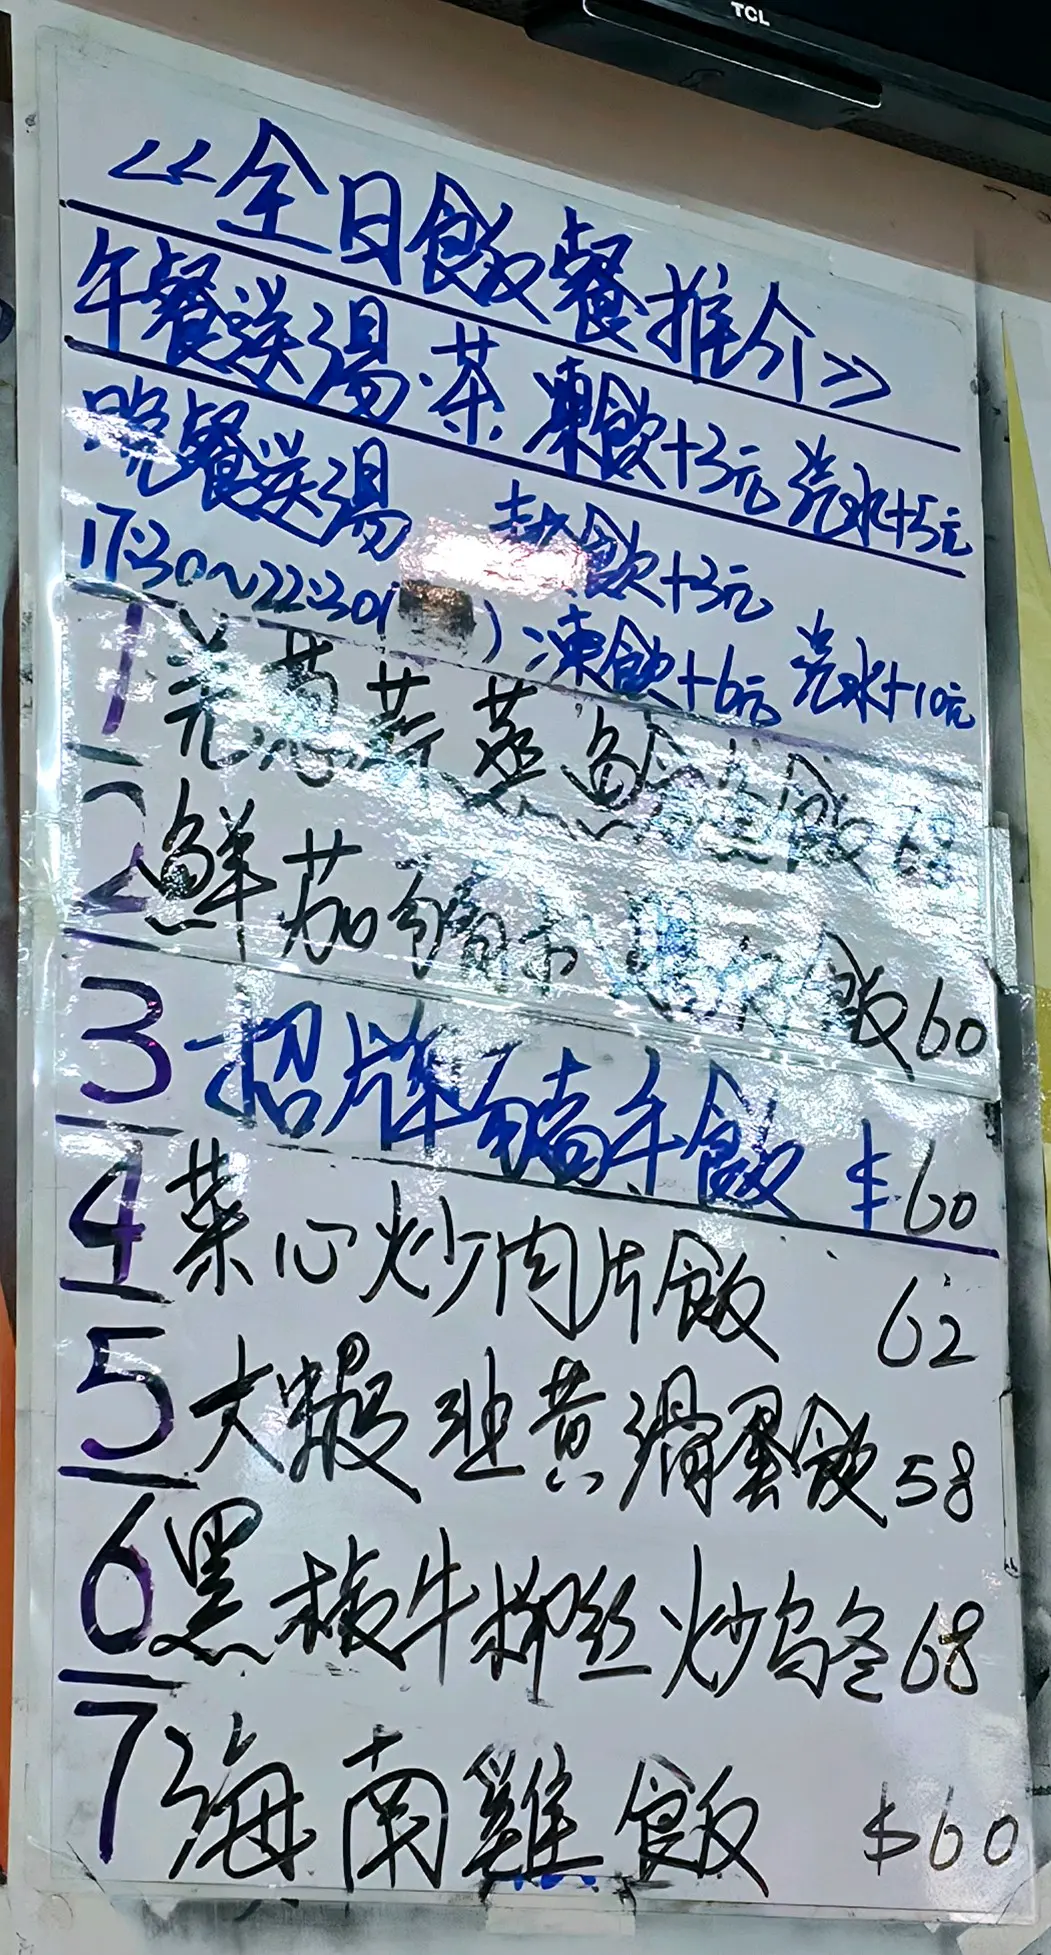 TCL
<<全日飯餐推介>>
午餐送湯.茶 凍飲+3元 汽水+5元
晚餐送湯 熱飲+3元
17:30~22:30( ) 凍飲+6元 汽水+10元
1 羌葱 蒸魚 飯 68
2 鮮茄 飯 60
3 招牌 飯 $60
4 菜心炒肉片飯 62
5 大蝦 黄滑蛋飯 58
6 黑椒牛柳絲炒烏冬 68
7 海南雞飯 $60